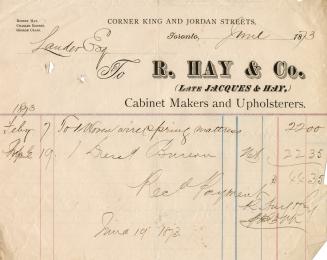 ROBERT HAY,
CHARLES ROGERS,
GEORGE CRAIG.
CORNER KING AND JORDAN STREETS,
Toronto, June 1873
Lauder Esq
To R. HAY & Co.
(LATE JACQUES & HAY,)
Cabinet Makers and Upholsterers.
1873
Feby 7 To 1 Woven wire spring mattress 22 00
19 1 Bureau 22 35
$ 44 35
Recd Payment
R. Hay & Co
June 19 1873